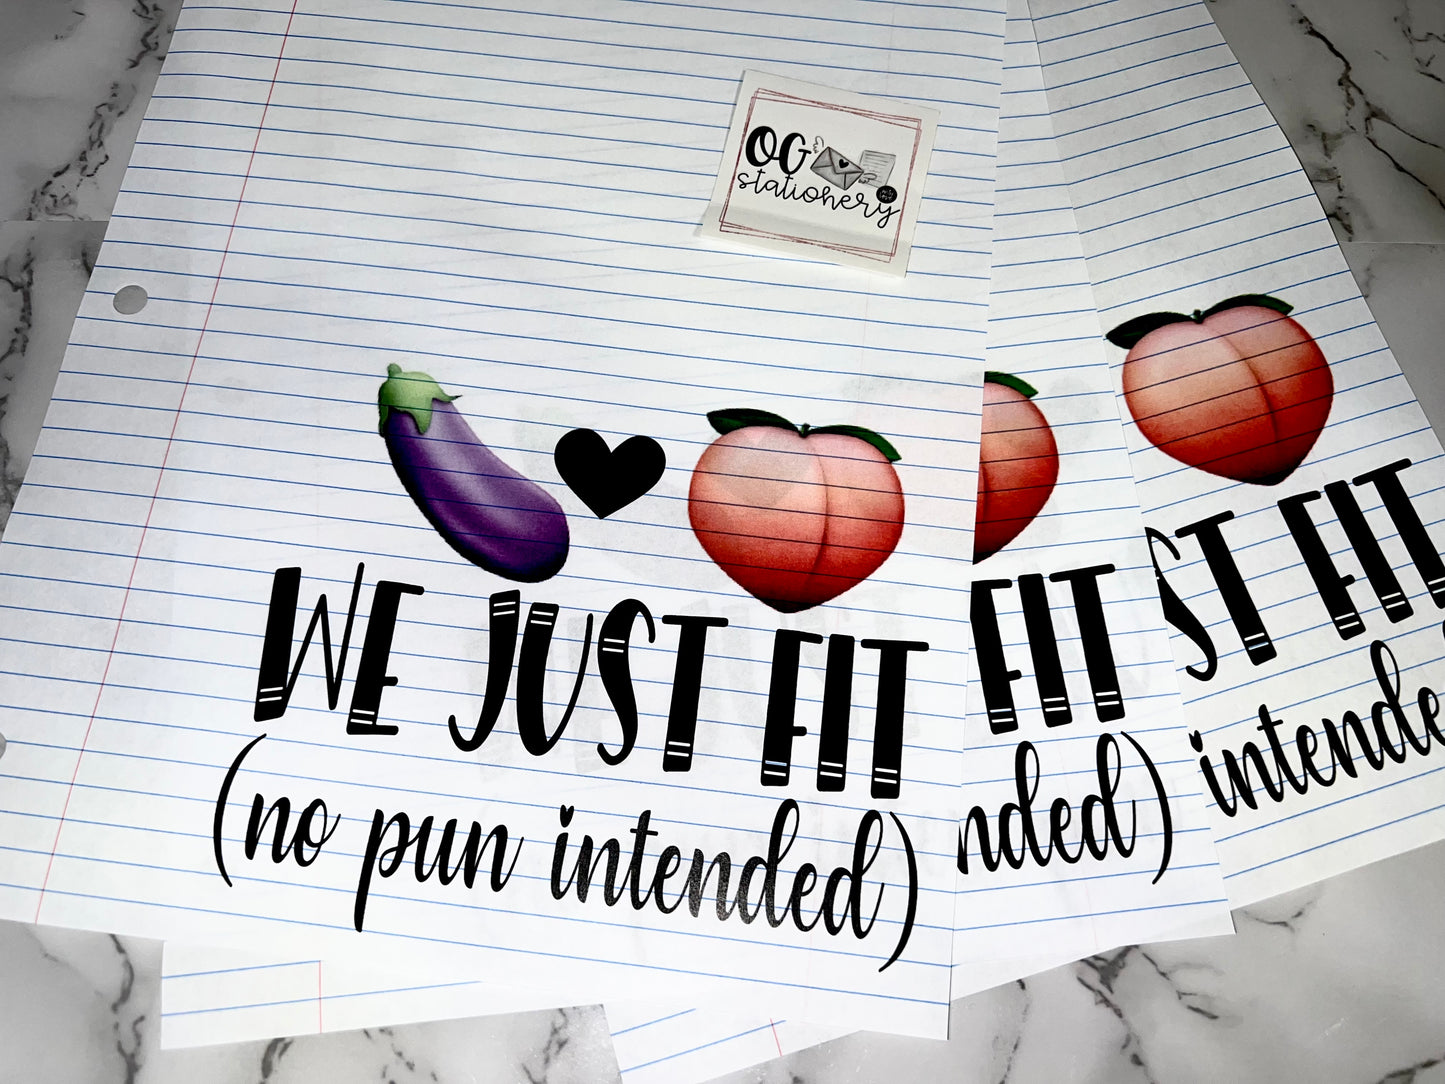 OG
stationery
WE JUST FIT
(no pun intended)
FIT
nded)
ST FIT
intende